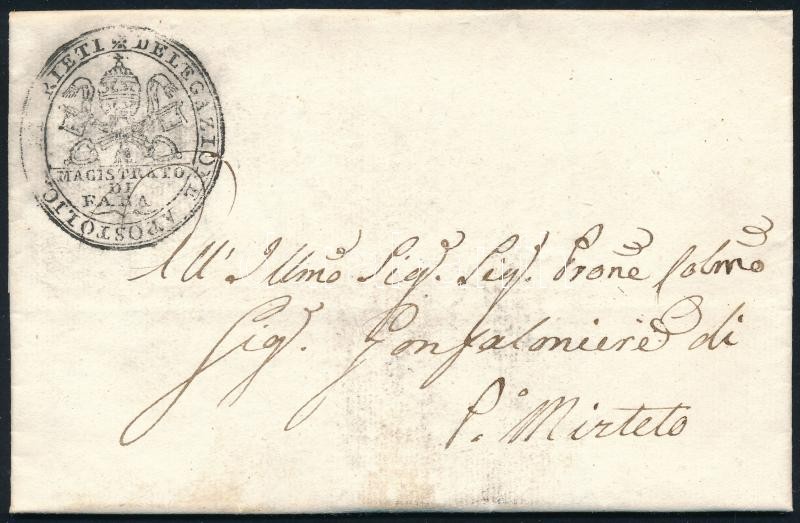 RIETI * DELEGAZIONE APOSTOLIC
MAGISTRATO
DI
FARA
All' Illmo Sig. Sig. Prone Colmo
Sig. Gonfaloniere di
P. Mirteto